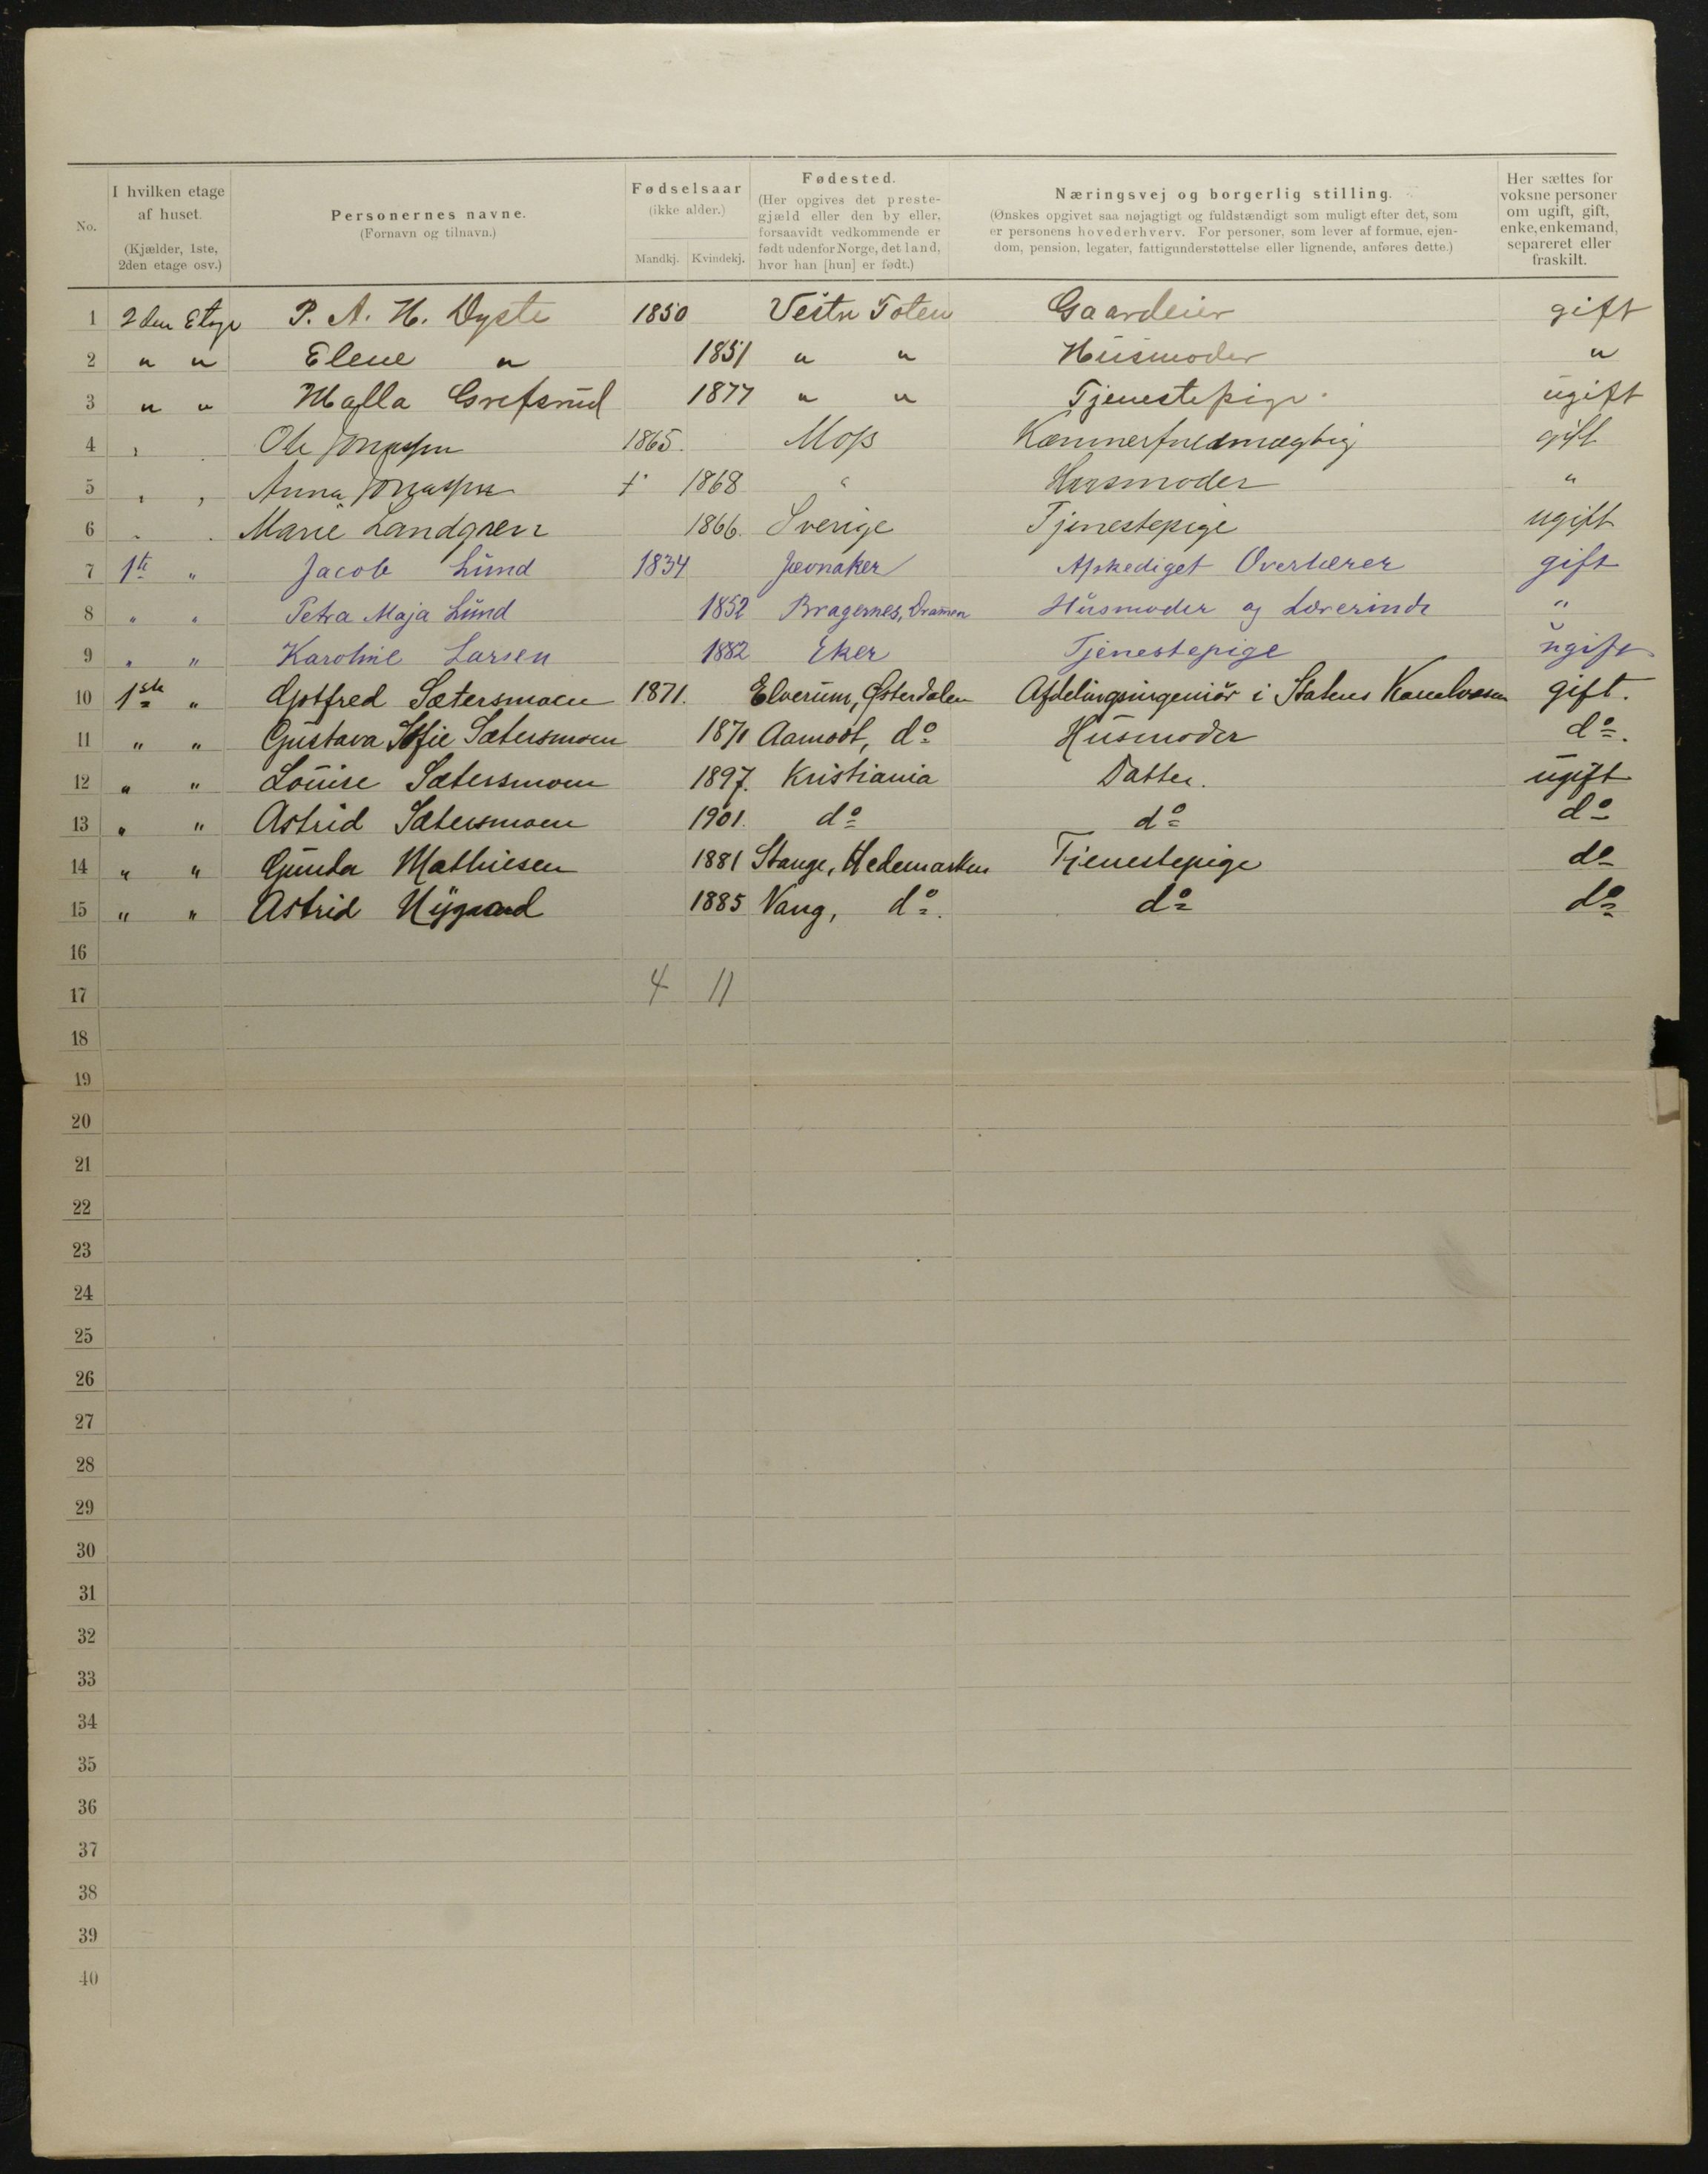 No.
I hvilken etage
af huset.
(Kjælder, 1ste,
2den etage osv.)
Personernes navne.
(Fornavn og tilnavn.)
Fødselsaar
(ikke alder.)
Mandkj. Kvindekj.
Fødested.
(Her opgives det preste-
gjæld eller den by eller,
forsaavidt vedkommende er
født udenfor Norge, det land,
hvor han [hun] er født.)
Næringsvej og borgerlig stilling.
(Ønskes opgivet saa nøjagtigt og fuldstændigt som muligt efter det, som
er personens hovederhverv. For personer, som lever af formue, ejen-
dom, pension, legater, fattigunderstøttelse eller lignende, anføres dette.)
Her sættes for
voksne personer
om ugift, gift,
enke, enkemand,
separeret eller
fraskilt.
1 2den Etage P. A. H. Dyste 1850 Vestre Toten Gaardeier gift
2 " " Elene " 1851 " " Husmoder "
3 " " Malla Grefsrud 1877 " " Tjenestepige ugift
4 " " Ole Jonassen 1865. Moss Kæmnerfuldmægtig gift
5 " " Anna Jonassen + 1868 " Husmoder "
6 " " Marie Landgren 1866. Sverige Tjenestepige ugift
7 1ste " Jacob Lund 1834 Jævnaker Afskediget Overlærer gift
8 " " Petra Maja Lund 1852 Bragernes, Dramen Husmoder og Lærerinde "
9 " " Karoline Larsen 1882 Eker Tjenestepige ugift
10 1ste " Gotfred Sætersmoen 1871. Elverum, Østerdalen Afdelingsingeniör i Statens Kanalvæsen gift.
11 " " Gustava Sofie Sætersmoen 1871 Aamodt, do Husmoder do.
12 " " Louise Sætersmoen 1897. Kristiania Datter. ugift
13 " " Astrid Sætersmoen 1901. do do do
14 " " Gunda Mathiesen 1881 Stange, Hedemarken Tjenestepige do
15 " " Astrid Nygaard 1885 Vang, do. do do
16
17 4 11
18
19
20
21
22
23
24
25
26
27
28
29
30
31
32
33
34
35
36
37
38
39
40